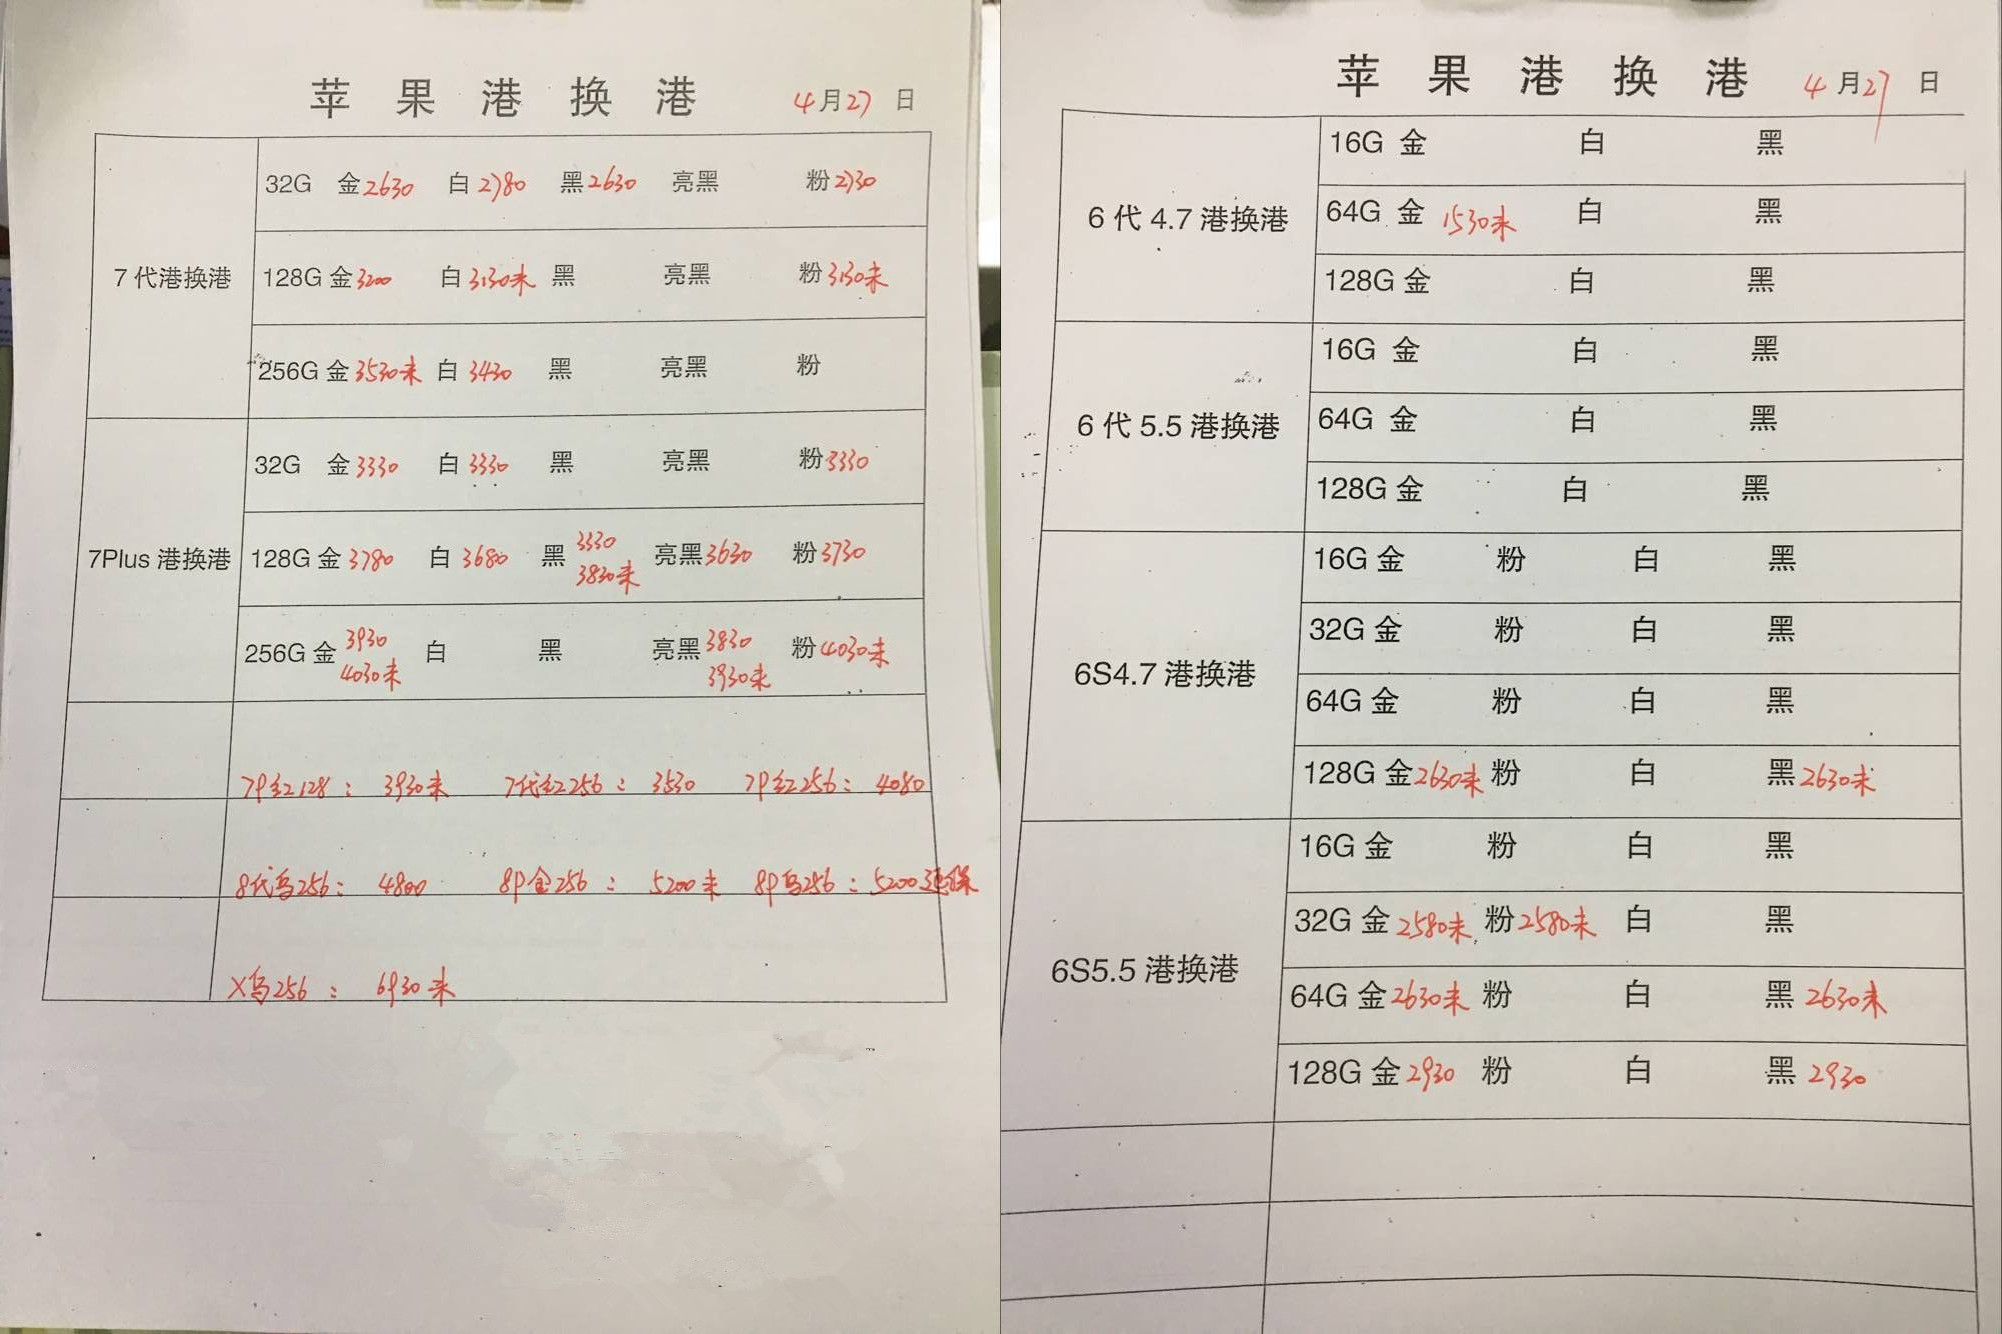 苹果港换港 4月27日
32G 金2630 白2780 黑2630 亮黑 粉2730
7代港换港
128G 金3200 白3130未 黑 亮黑 粉3130未
256G 金3530未 白3430 黑 亮黑 粉
32G 金3330 白3330 黑 亮黑 粉3330
7Plus 港换港
128G 金3780 白3680 黑3330 3830未 亮黑3630 粉3730
256G 金3930 4030未 白 黑 亮黑3830 3930未 粉4030未
7P红128: 3930未 7代红256: 3530 7P红256: 4080
8代鸟256: 4800 8P金256: 5200未 8P鸟256: 5200
X鸟256: 6930未
苹果港换港 4月27日
16G 金 白 黑
6代4.7港换港
64G 金 1530未 白 黑
128G 金 白 黑
16G 金 白 黑
6代5.5港换港
64G 金 白 黑
128G 金 白 黑
16G 金 粉 白 黑
32G 金 粉 白 黑
6S4.7港换港
64G 金 粉 白 黑
128G 金2630未 粉 白 黑2630未
16G 金 粉 白 黑
32G 金2580未 粉2580未 白 黑
6S5.5港换港
64G 金2630未 粉 白 黑2630未
128G 金2930 粉 白 黑2930